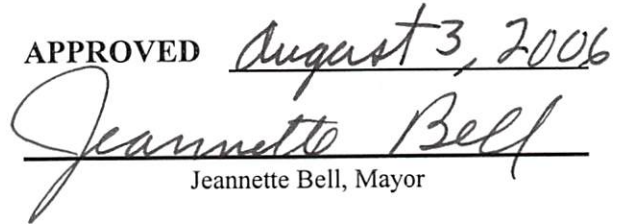 APPROVED August 3, 2006
Jeannette Bell
Jeannette Bell, Mayor